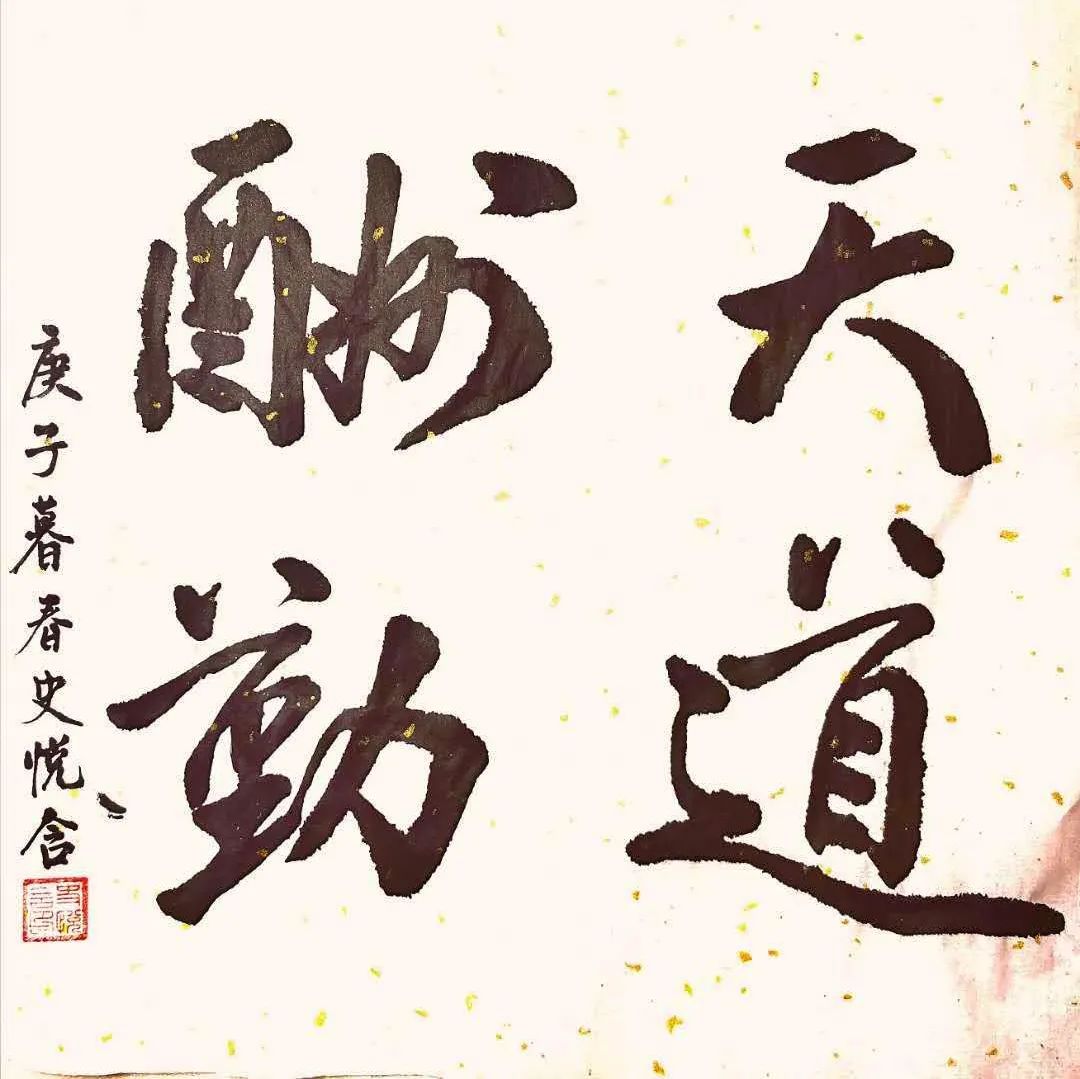 天道
酬勤
庚子暮春史悦含